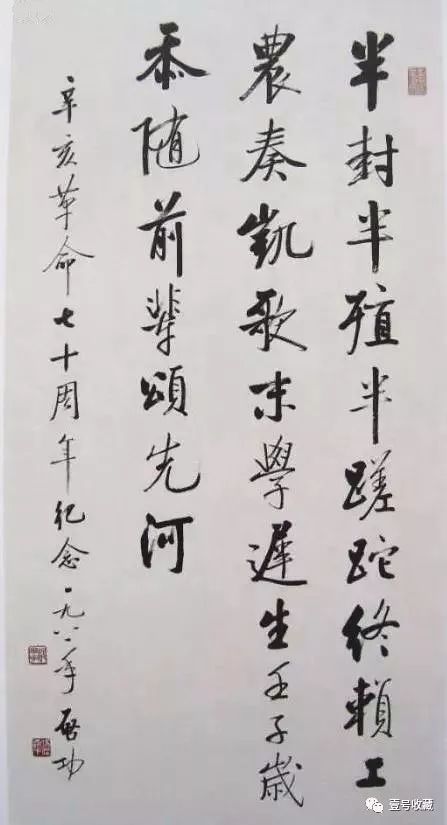 半封半殖半蹉跎终賴工
農奏凱歌末學遲生壬子歲
忝随前輩頌先河
辛亥革命七十周年纪念一九八一年啓功
壹号收藏